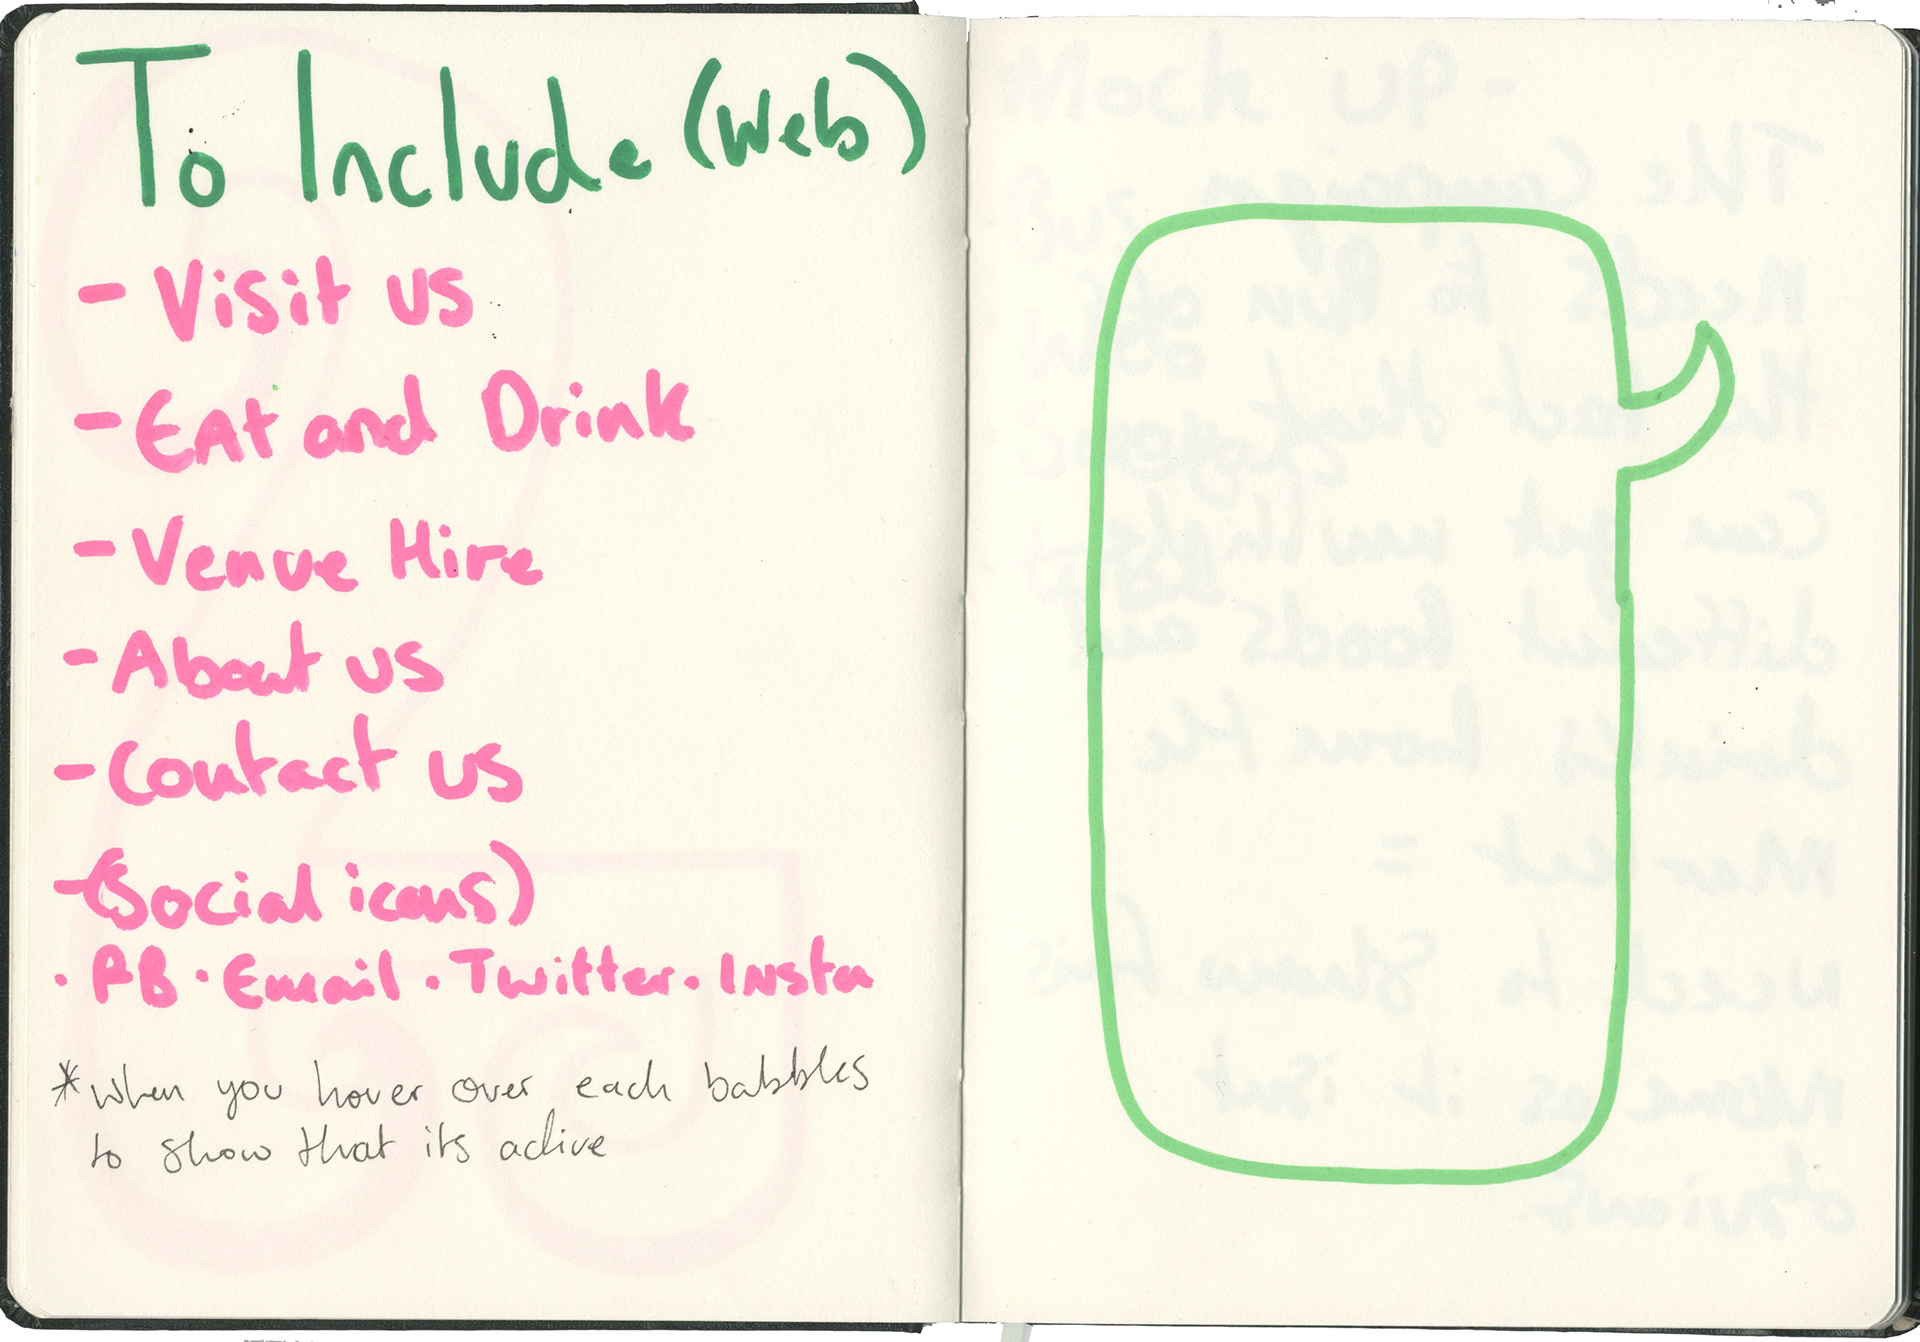 To Include (Web)
- Visit us
- EAt and Drink
- Venue Hire
- About us
- Contact us
- (Social icons)
· FB · Email · Twitter · Insta
* when you hover over each babbles
to show that its active